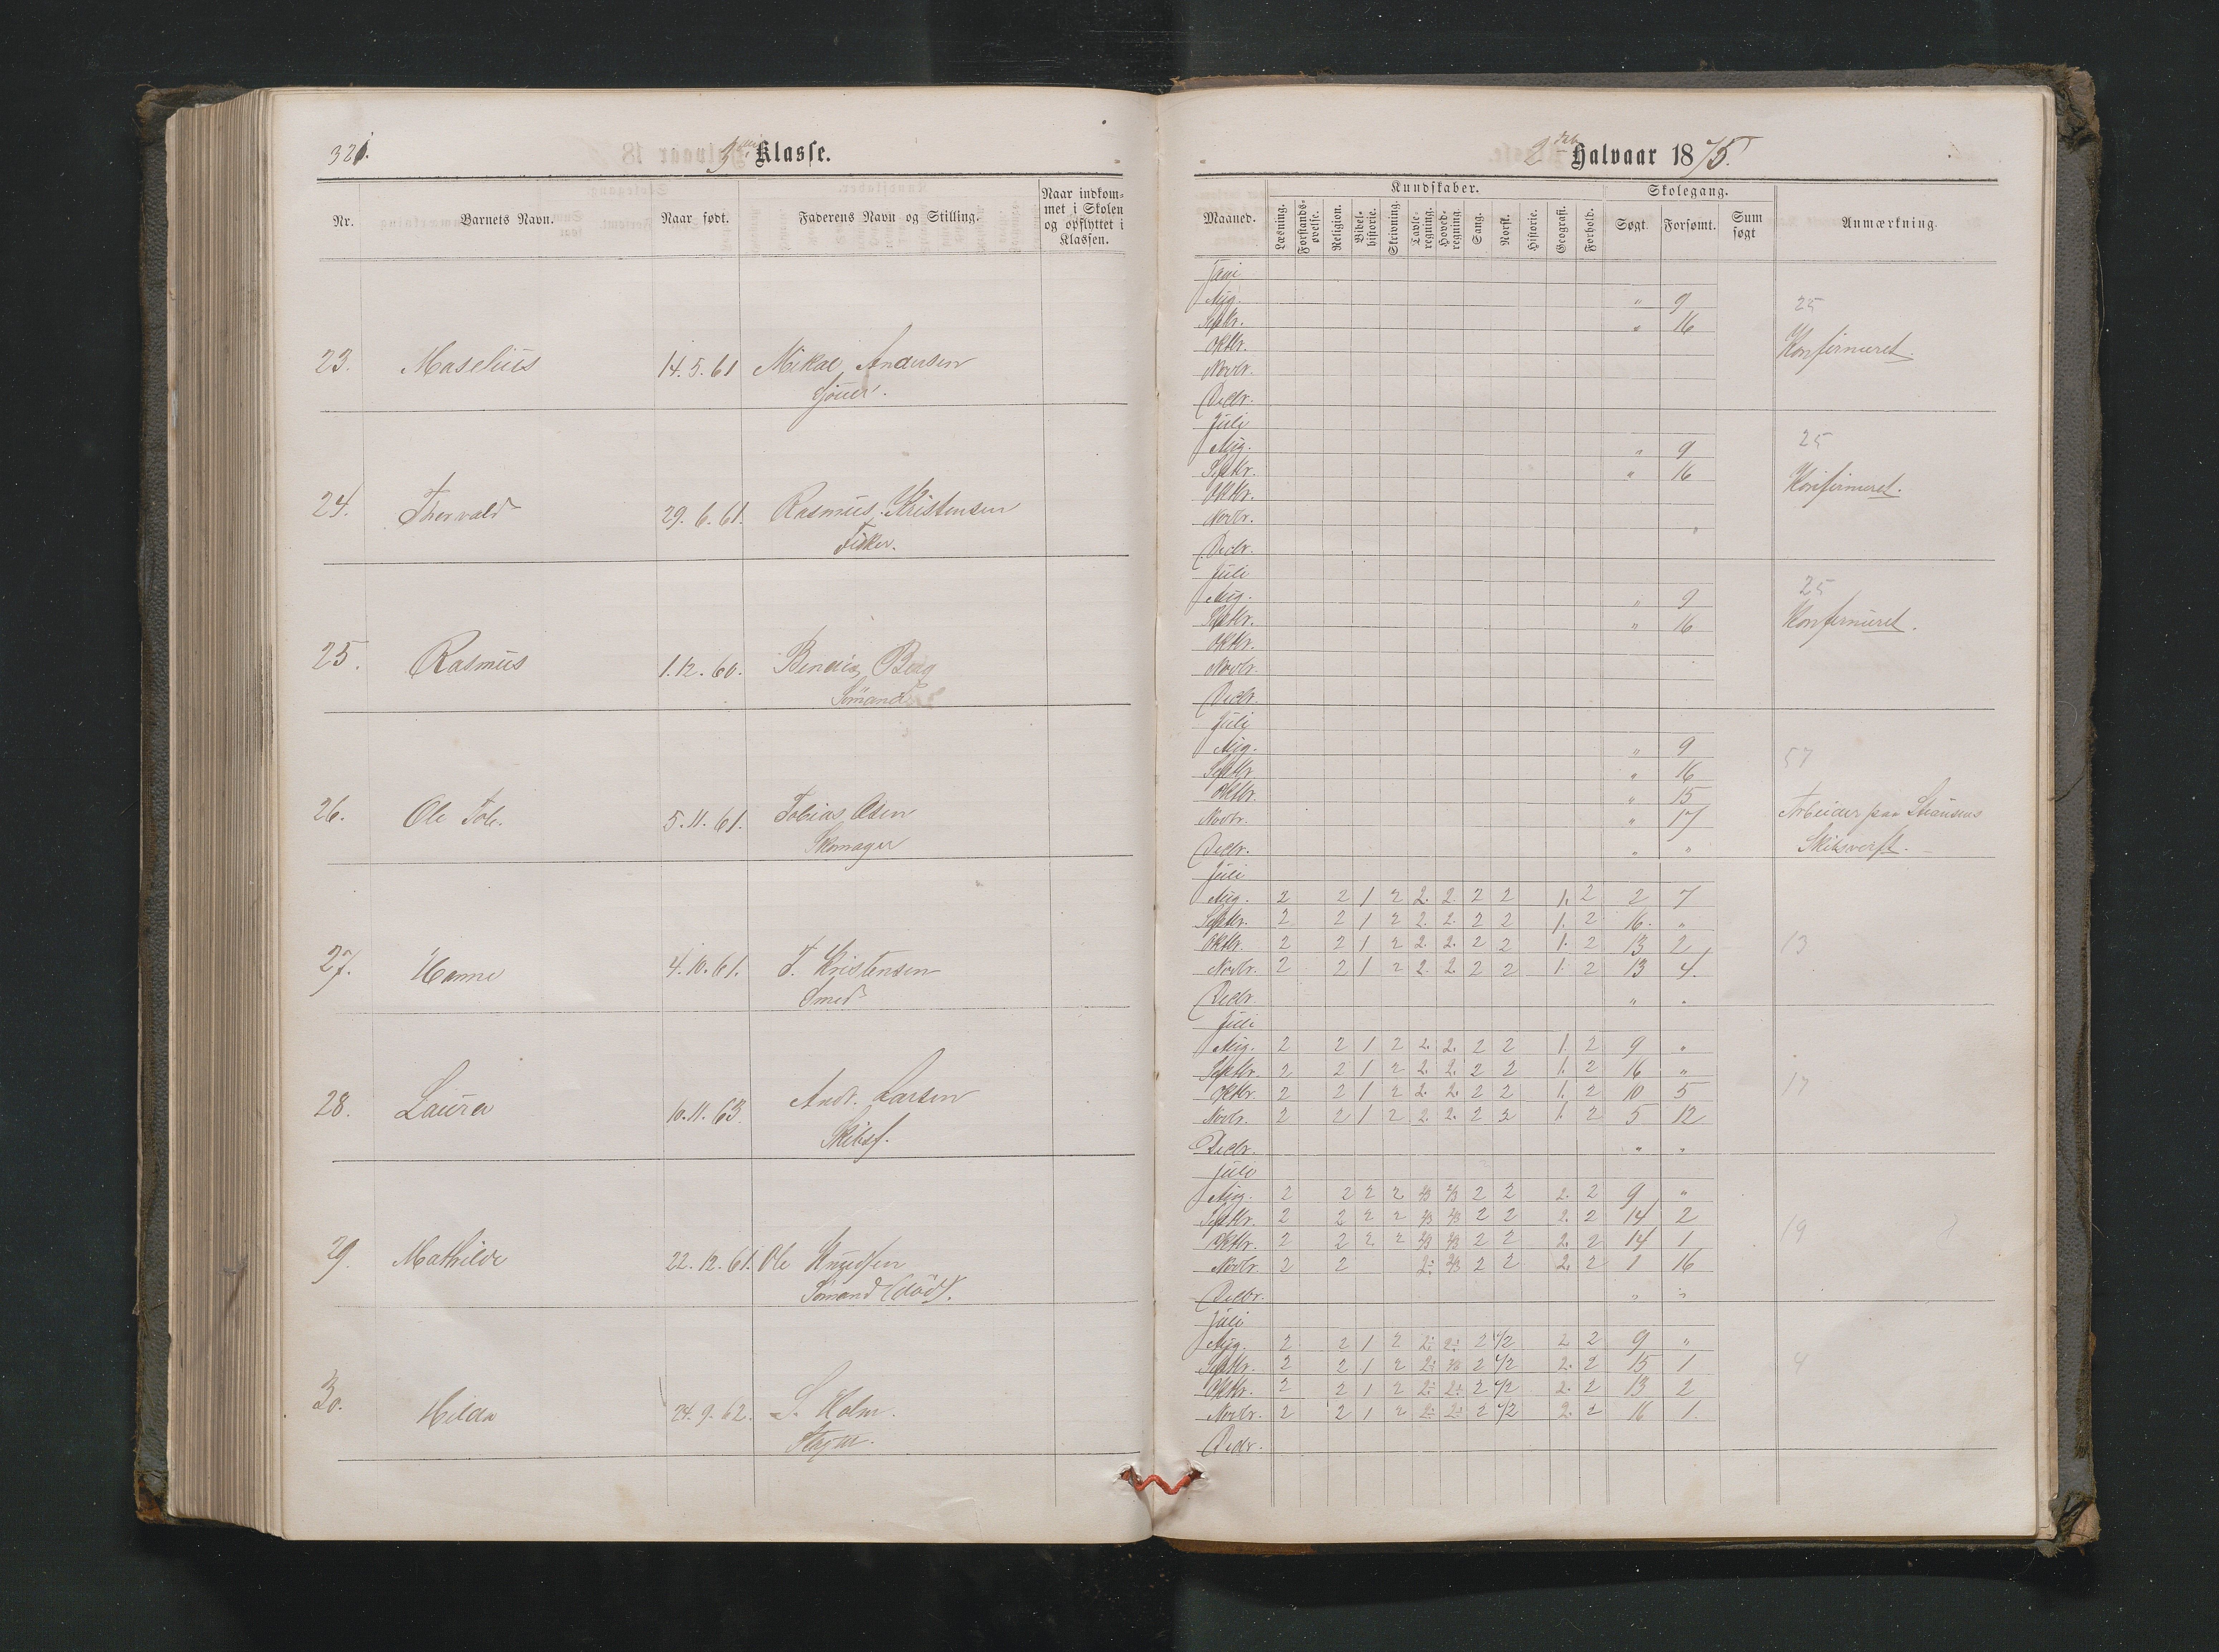 321.
Klasse.
Nr.
Barnets Navn.
Naar født.
Faderens Navn og Stilling.
Naar indkom-
met i Skolen
og opflyttet i
Klassen.
23. Maselius 14.5.61 Mikal Andersen
24. Thorvald 29.6.61. Rasmus Kristensen
Fisker.
25. Rasmus 1.12.60. Berg
Sömand
26. Ole Tob. 5.11.61. Tobias Olsen
Skomager
27. Hanne 4.10.61. F. Kristensen
Smed
28. Laura 10.11.63. Andr. Larsen
Skibsf.
29. Mathilde 22.12.61. Ole Knudsen
Sömand (död).
30. Hilda 24.9.62. S. Holm.
2det Halvaar 1875.
Maaned.
Kundskaber.
Læsning.
Forstands-
øvelse.
Religion.
Bibel-
historie.
Skrivning.
Tavle-
regning.
Hoved-
regning.
Sang.
Norsk.
Historie.
Geografi.
Forhold.
Skolegang.
Søgt.
Forsømt.
Sum
søgt
Anmærkning.
Juli
Aug. " 9 25
Septbr. " 16
Oktbr. Konfirmeret.
Novbr.
Decbr.
Juli
Aug. " 9 25
Septbr. " 16
Oktbr. Konfirmeret.
Novbr. "
Decbr.
Juli
Aug. " 9 25
Septbr. " 16 Konfirmeret.
Oktbr.
Novbr.
Decbr.
Juli
Aug. " 9 57
Septbr. " 16
Oktbr. " 15
Novbr. " 17 Arbeider paa
Decbr. " " Skibsverft.
Juli
Aug. 2 2 1 2 2. 2. 2 2 1. 2 2 7
Septbr. 2 2 1 2 2. 2. 2 2 1. 2 16. "
Oktbr. 2 2 1 2 2. 2. 2 2 1. 2 13 2 13
Novbr. 2 2 1 2 2. 2. 2 2 1. 2 13 4.
Decbr. " "
Juli
Aug. 2 2 1 2 2. 2. 2 2 1. 2 9 "
Septbr. 2 2 1 2 2. 2. 2 2 1. 2 16 "
Oktbr. 2 2 1 2 2. 2. 2 2 1. 2 10 5 17
Novbr. 2 2 1 2 2. 2. 2 2 1. 2 5 12
Decbr. " "
Juli
Aug. 2 2 2 2 2/3 2/3 2 2 2. 2 9 "
Septbr. 2 2 2 2 2/3 2/3 2 2 2. 2 14 2
Oktbr. 2 2 2 2 2/3 2/3 2 2 2. 2 14 1 19
Novbr. 2 2 2/3 2 2 2. 2 1 16
Decbr. " "
Juli
Aug. 2 2 1 2 2 1/2 2 2 9 "
Septbr. 2 2 1 2 2 1/2 2. 2 15 1 4
Oktbr. 2 2 1 2 2 1/2 2. 2 13 2
Novbr. 2 2 1 2 2 1/2 2. 2 16 1.
Decbr.